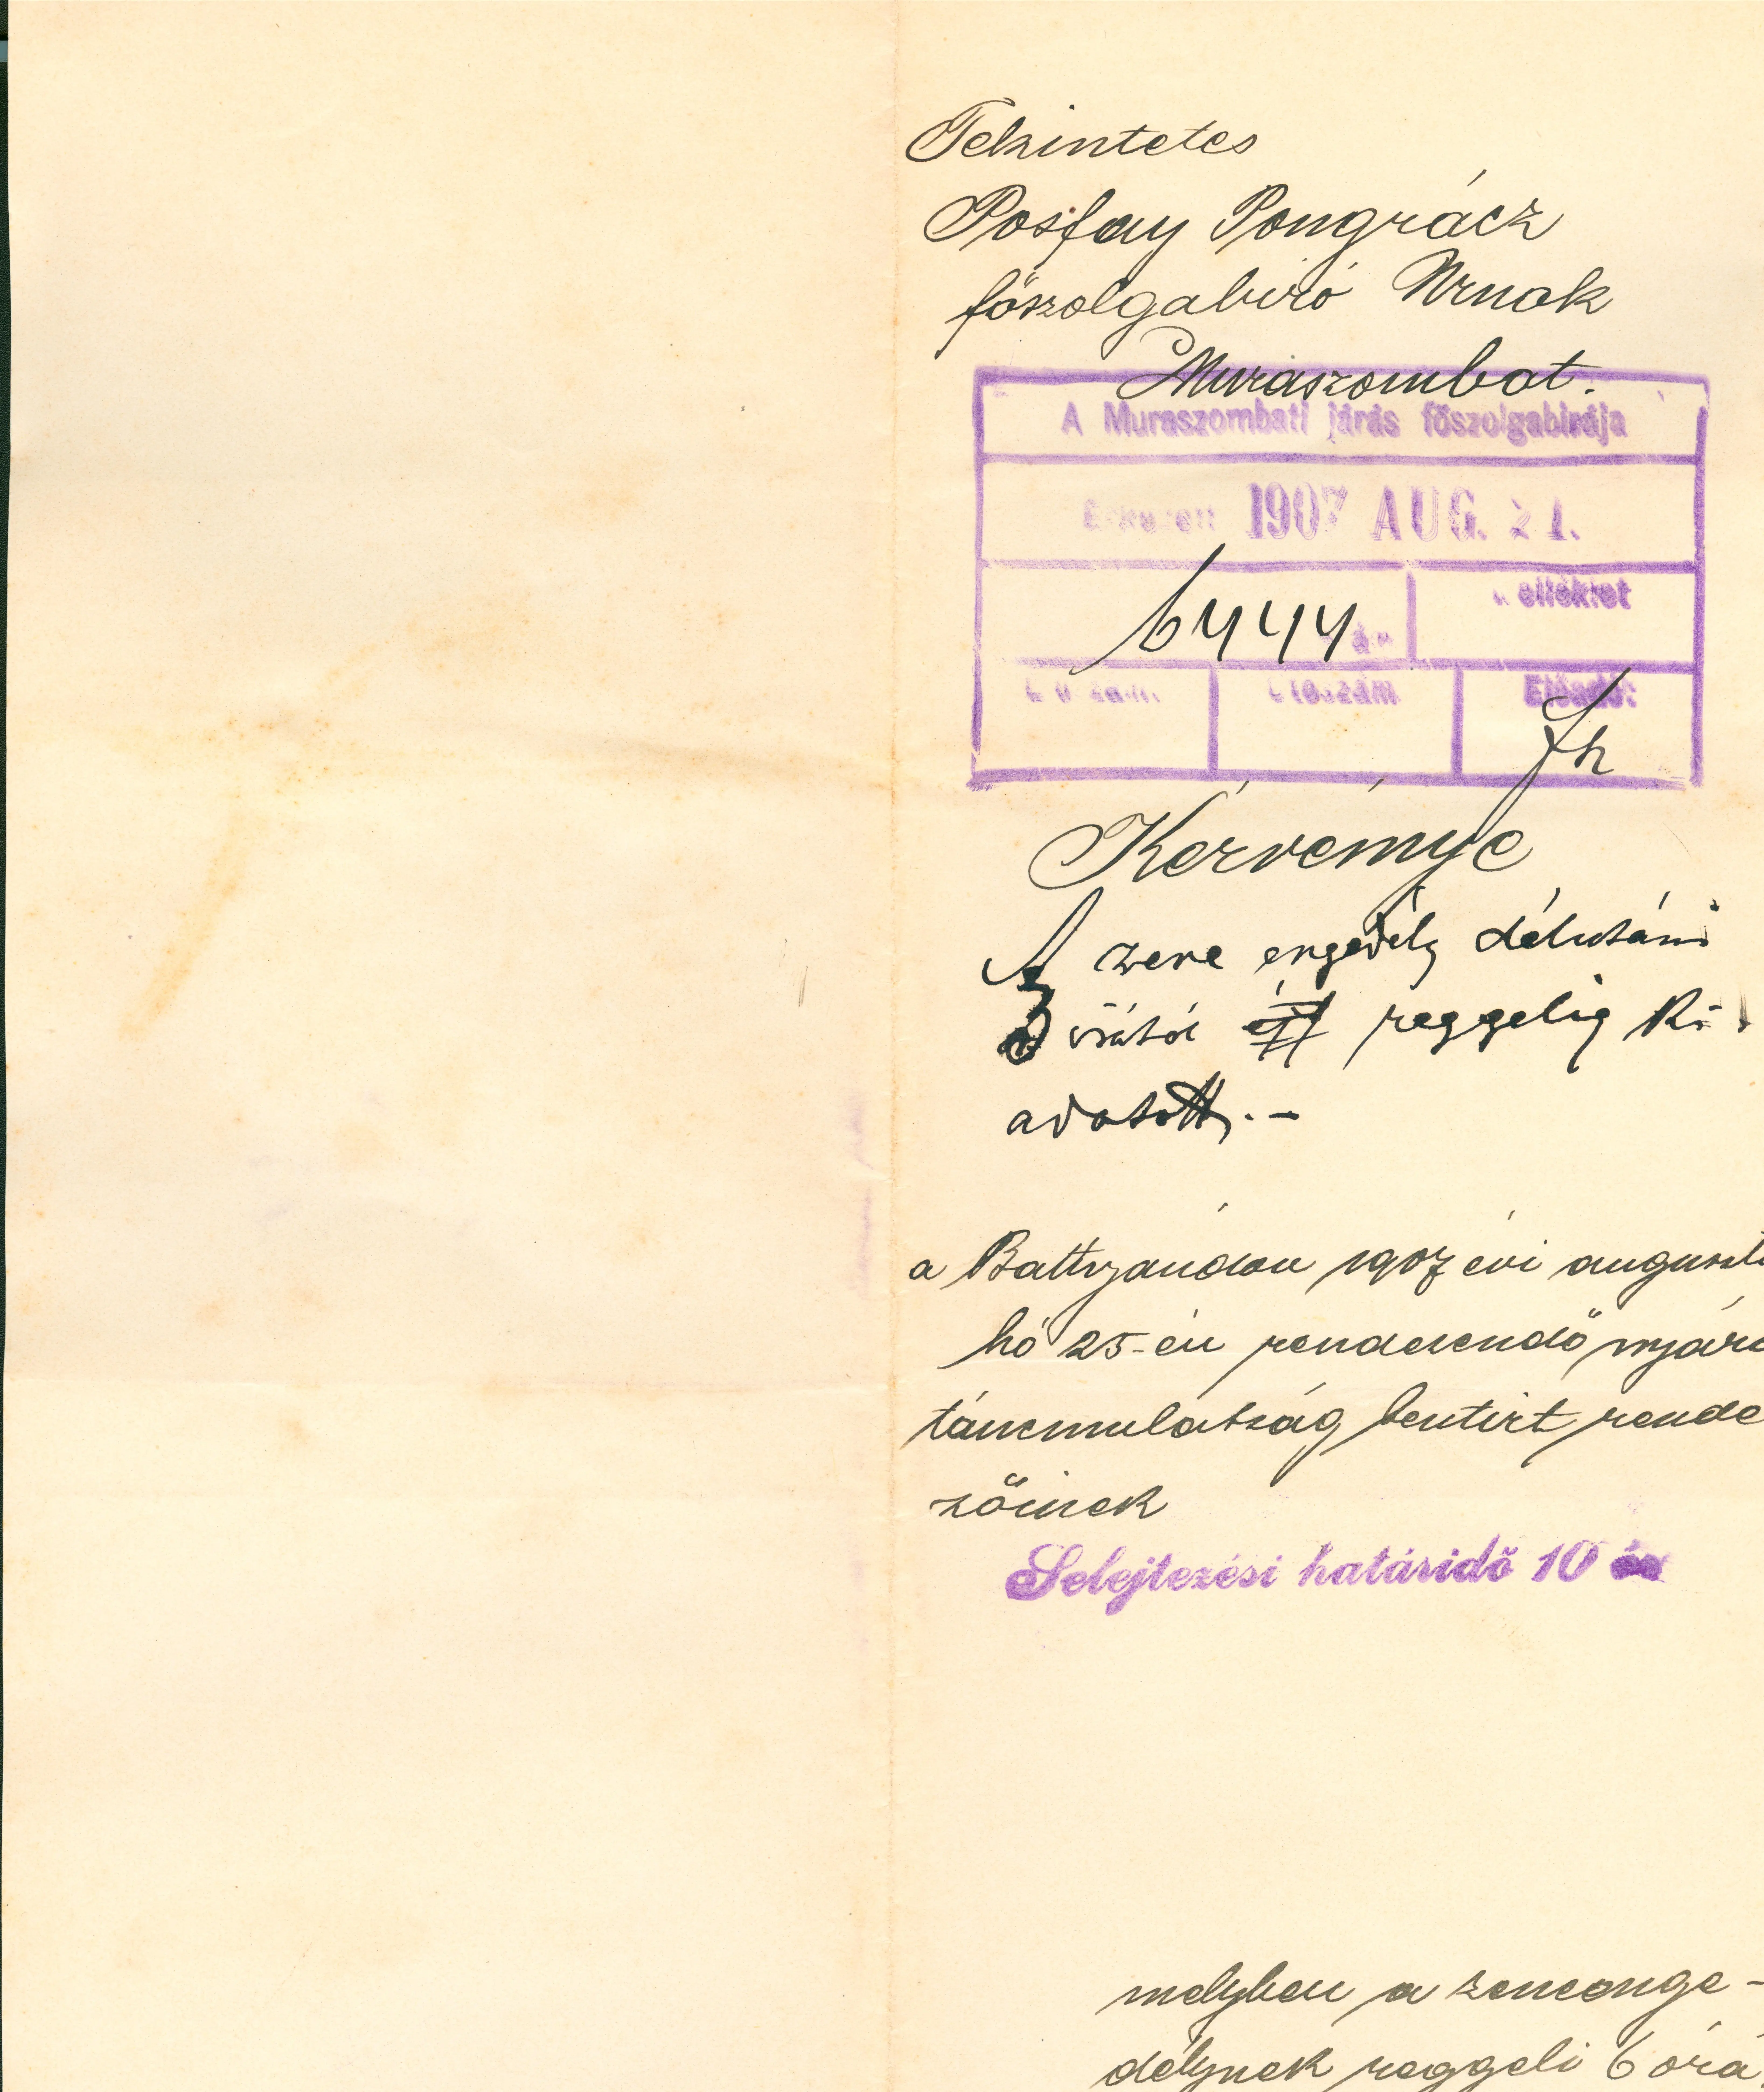 Tekintetes
Posfay Pongrácz
főszolgabiró Urnak
Muraszombat.
A Muraszombati járás főszolgabirája
Érkezett 1907 AUG. 21.
6444
melléklet
Előadó:
Kérvénye
A zene engedély délutáni
3 órától reggelig ki-
adatott. -
a Battyandon 1907 évi auguszt
hó 25-én rendezendő nyári
táncmulatság bentirt rende
zőinek
Selejtezési határidő 10 év
melyben a zeneenge-
délynek reggeli 6 órá